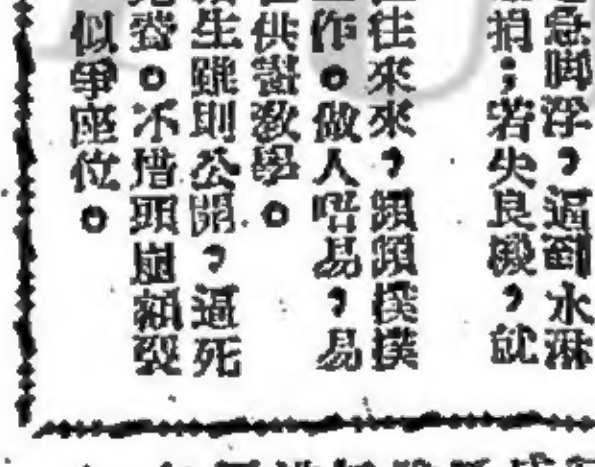 急脚浮，逼到水淋
損；若失良機，就
往來來，頻頻撲撲
作。做人唔易，易
供書教學。
生雖則公開，逼死
。不惜頭崩額裂
似爭座位。